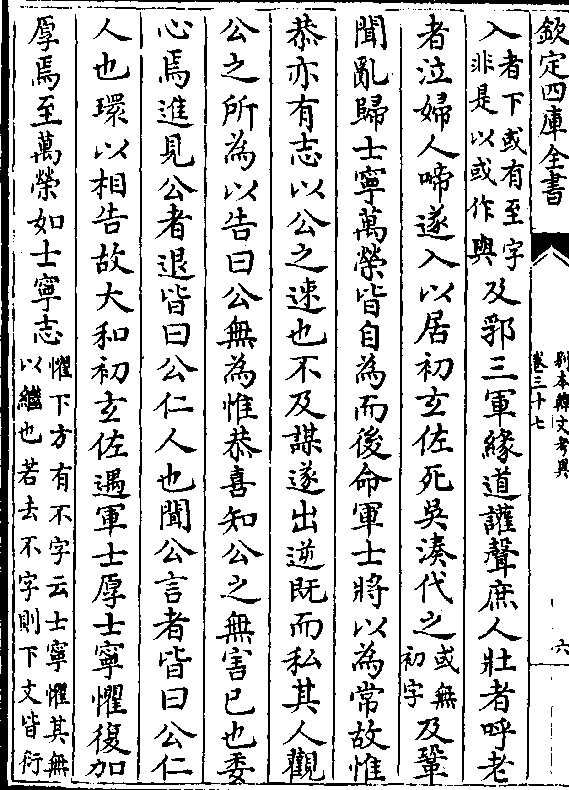 欽定四庫全書
別本韓文考異
卷三十七
六
入者下或有至字
非是以或作與及郛三軍緣道讙聲庶人壯者呼老
者泣婦人啼遂入以居初玄佐死吳湊代之或無
初字及鞏
聞亂歸士寧萬榮皆自為而後命軍士將以為常故惟
恭亦有志以公之速也不及謀遂出逆既而私其人觀
公之所為以告曰公無為惟恭喜知公之無害已也委
心焉進見公者退皆曰公仁人也聞公言者皆曰公仁
人也環以相告故大和初玄佐遇軍士厚士寧懼復加
厚焉至萬榮如士寧志懼下方有不字云士寧懼其無
以繼也若去不字則下文皆衍